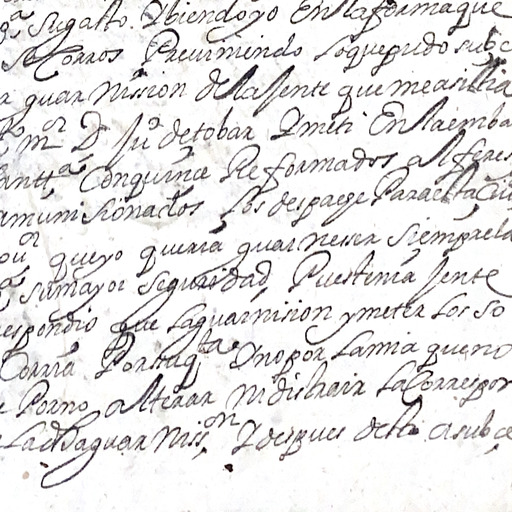 su gasto. Y biendo yo En la forma que
Socorros Preuiniendo lo que pudo subce
guarnission de la Jente que me asistia
Mor D Juo de tobar Y meti En la emba
Con quince Reformados alferes
amunisionados los despaege Para esta Ciu
que yo queria guarneser siempre la
su mayor seguridad, Pues tenia Jente
respondio que la guarnision y meter los so
Corria Por su qta Y no por la mia que no
Por no alterar ni distrair la Correspon
la dha guarnisson Y despues desto a subce